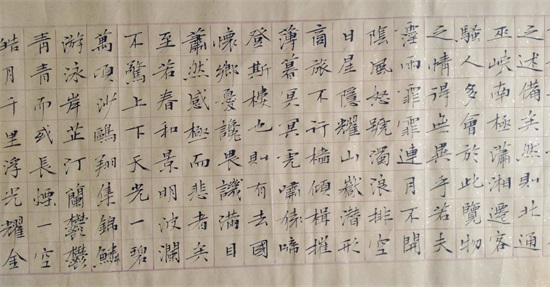 之述備矣然則北通
巫峽南極瀟湘遷客
騷人多會於此覽物
之情得無異乎若夫
霪雨霏霏連月不開
陰風怒號濁浪排空
日星隱耀山嶽潛形
商旅不行檣傾楫摧
薄暮冥冥虎嘯猿啼
登斯樓也則有去國
懷鄉憂讒畏譏滿目
蕭然感極而悲者矣
至若春和景明波瀾
不驚上下天光一碧
萬頃沙鷗翔集錦鱗
游泳岸芷汀蘭鬱鬱
青青而或長煙一空
皓月千里浮光耀金